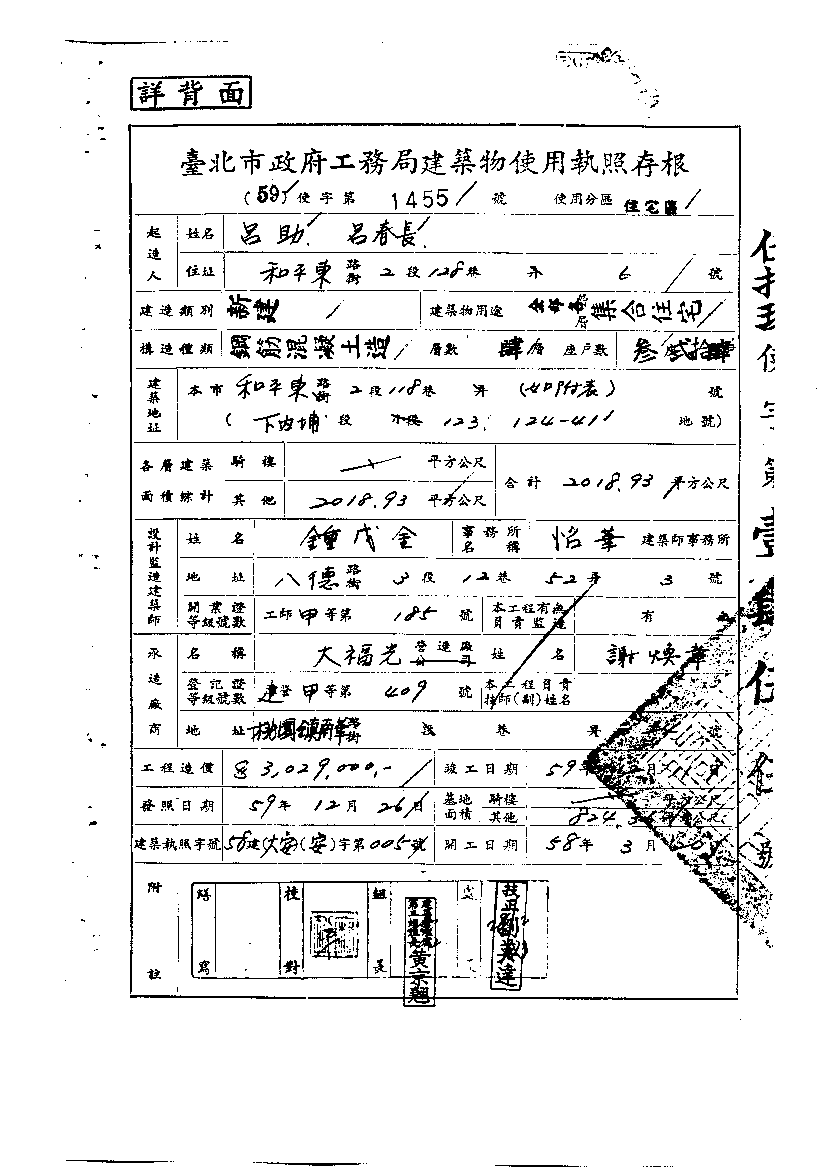 詳背面
臺北市政府工務局建築物使用執照存根
(59)使字第 1455 號 使用分區 住宅區
起造人 姓名 呂助 呂春長
住址 和平東路街 2段128巷 弄 6 號
建造類別 新建 建築物用途 集合住宅
構造種類 鋼筋混凝土造 層數 肆層 座戶數 叁 貳拾肆
建築地址 本市 和平東路街 2段118巷 弄 (如附表) 號
(下內埔 段 小段 123. 124-41 地號)
各層建築面積綜計 騎樓 平方公尺 合計 2018.93 平方公尺
其他 2018.93 平方公尺
設計監造建築師 姓名 鍾茂金 事務所名稱 怡華 建築師事務所
地址 八德路街 3段12巷 52弄 3號
開業證等級號數 工師甲等第 185 號 本工程有無負責監造 有
承造廠商 名稱 大福光 營造廠公司 姓名 謝煥華
登記證等級號數 建登甲等第 409 號 本工程負責技師(副)姓名
地址 桃園鎮南華路街 段 巷 弄 號
工程造價 3,029,000.- 竣工日期 59年 月
發照日期 59年12月26日 基地面積 騎樓 平方公尺
其他 824. 平方公尺
建築執照字號 58建(大安)(安)字第005號 開工日期 58年3月
附註 繕寫 校對 組長
黃京翹
技正